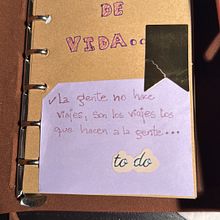 DE
VIDA...
✓La gente no hace
viajes, son los viajes los
que hacen a la gente...
to do